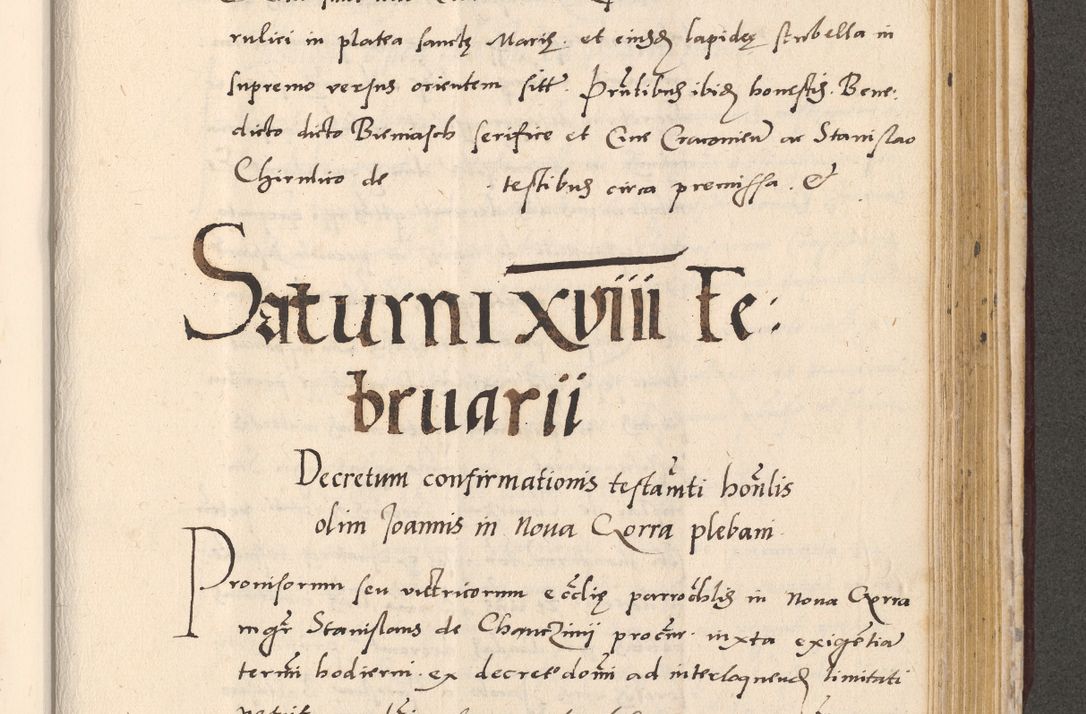 rulici in platea sanctę Marię. et eiusdẽ lapideę stubella in
supremo versus orientem sitť. Prñtibus ibidẽ honestis. Bene:
dicto dicto Bieniasch serifice et Cive Cracovieñ ac Stanislao
Chirnlico de testibus circa premissa. &
Saturni xviii Fe:
bruarii
Decretum confirmationis testam̃ti hon̄lis
olim Joannis in Nova Gorra plebani
Provisorum seu victricorum eccl̃ię parroc̃hlis in Nova Gorra
mgr̃ Stanislaus de Chanczinii procur̃. iuxta exigentiã
term̃i hodierni. ex decreto dom̃i ad interloquendũ limitati